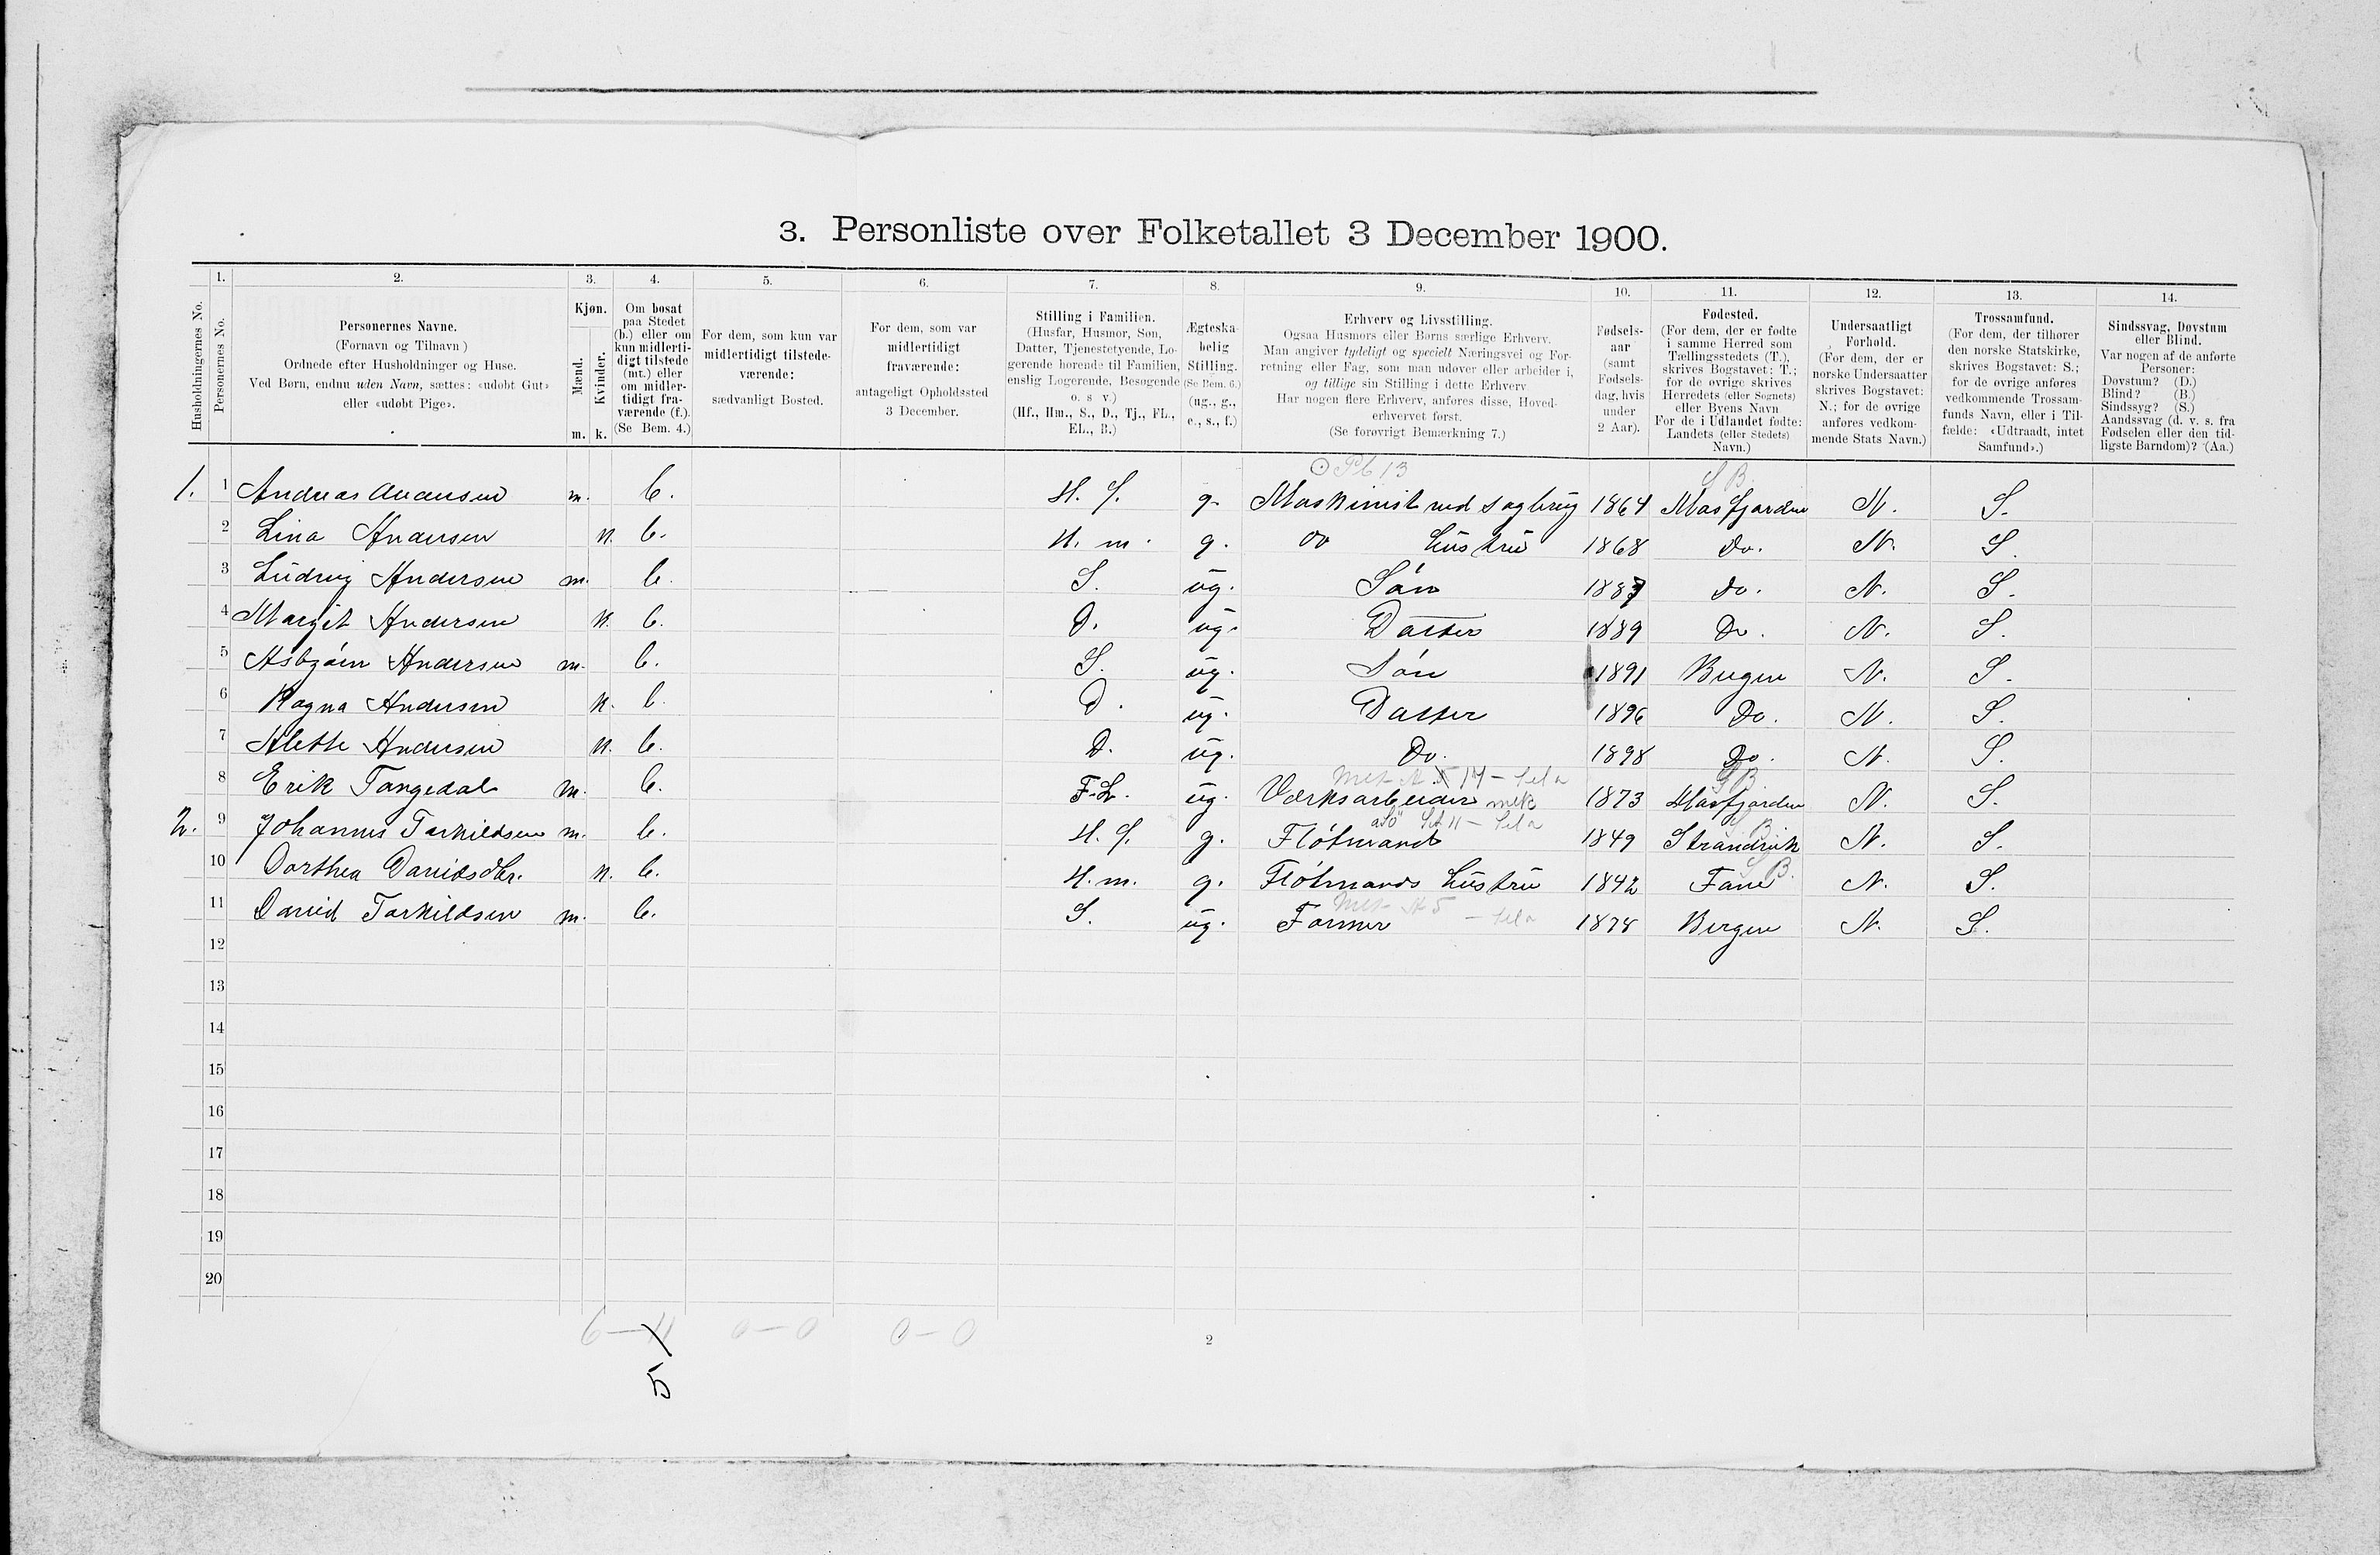 3. Personliste over Folketallet 3 December 1900.
Husholdningernes No.
1.
Personernes No.
2.
Personernes Navne.
(Fornavn og Tilnavn)
Ordnede efter Husholdninger og Huse.
Ved Børn, endnu uden Navn, sættes: «udøbt Gut»
eller «udøbt Pige».
3.
Kjøn.
Mænd.
Kvinder.
m. k.
4.
Om bosat
paa Stedet
(b.) eller om
kun midlerti-
digt tilstede
(mt.) eller
om midler-
tidigt fra-
værende (f.).
(Se Bem. 4.)
5.
For dem, som kun var
midlertidigt tilstede-
værende:
sædvanligt Bosted.
6.
For dem, som var
midlertidigt
fraværende:
antageligt Opholdssted
3 December.
7.
Stilling i Familien.
(Husfar, Husmor, Søn,
Datter, Tjenestetyende, Lo-
gerende hørende til Familien,
enslig Logerende, Besøgende
o. s v.)
(Hf., Hm., S., D., Tj., FL.,
EL., B.)
8.
Ægteska-
belig
Stilling.
(Se Bem. 6.)
(ug., g.,
e., s., f.)
9.
Erhverv og Livsstilling.
Ogsaa Husmors eller Børns særlige Erhverv.
Man angiver tydeligt og specielt Næringsvei og For-
retning eller Fag, som man udøver eller arbeider i,
og tillige sin Stilling i dette Erhverv
Har nogen flere Erhverv, anføres disse, Hoved-
erhvervet først.
(Se forøvrigt Bemærkning 7.)
10.
Fødsels-
aar
(samt
Fødsels-
dag, hvis
under
2 Aar).
11.
Fødested.
(For dem, der er fødte
i samme Herred som
Tællingsstedets (T.),
skrives Bogstavet: T.;
for de øvrige skrives
Herredets (eller Sognets)
eller Byens Navn
For de i Udlandet fødte:
Landets (eller Stedets)
Navn.)
12.
Undersaatligt
Forhold.
(For dem, der er
norske Undersaatter
skrives Bogstavet:
N.; for de øvrige
anføres vedkom-
mende Stats Navn.)
13.
Trossamfund.
(For dem, der tilhører
den norske Statskirke,
skrives Bogstavet: S.;
for de øvrige anføres
vedkommende Trossam-
funds Navn, eller i Til-
fælde: «Udtraadt, intet
Samfund».)
14.
Sindssvag, Døvstum
eller Blind.
Var nogen af de anførte
Personer:
Døvstum? (D.)
Blind? (B.)
Sindssyg? (S.)
Aandssvag (d. v. s. fra
Fødselen eller den tid-
ligste Barndom)? (Aa.)
Pb 13 S B.
1. 1 Andreas Andersen m. b. H. f. g. Maskinist ved sagbrug 1864 Masfjorden N. S.
2 Lina Andersen k. b. H. m. g. do Hustru 1868 Do. N. S.
3 Ludvig Andersen m. b. S. ug. Søn 1887 Do. N. S.
4 Margit Andersen k. b. D. ug. Datter 1889 Do. N. S.
5 Asbjørn Andersen m. b. S. ug. Søn 1891 Bergen N. S.
6 Ragna Andersen k. b. D. ug. Datter 1896 Do. N. S.
7 Alette Andersen k. b. D. ug. Do. 1898 Do. N. S.
S B
8 Erik Tangedal m. b. F.L. ug. Værksarbeider mek 1873 Masfjorden N. S.
2. 9 Johannes Tarkildsen m. b. H. f. g. Fløtmand 1849 Strandvik N. S.
10 Dorthea Davidsdtr. k. b. H. m. g. Fløtmands Hustru 1842 Fane N. S.
11 David Tarkildsen m. b. S. ug. Former 1878 Bergen N. S.
12
13
14
15
16
17
18
19
20
0-0 0-0
2
5